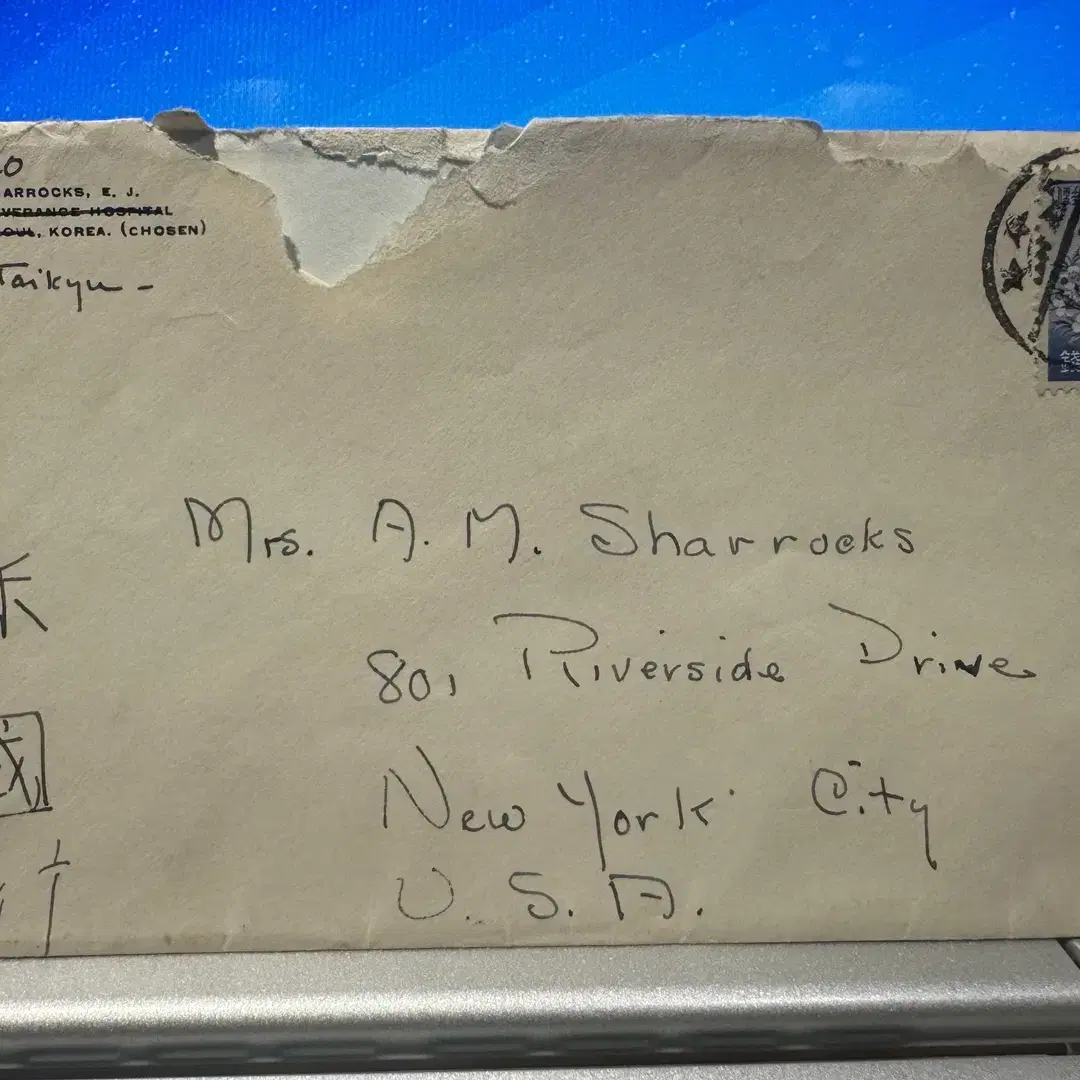 ARROCKS, E. J.
VERANCE HOSPITAL
OUL, KOREA. (CHOSEN)
Taikyu -
Mrs. A. M. Sharrocks
801 Riverside Drive
New York City
U. S. A.
米
國
行
錢